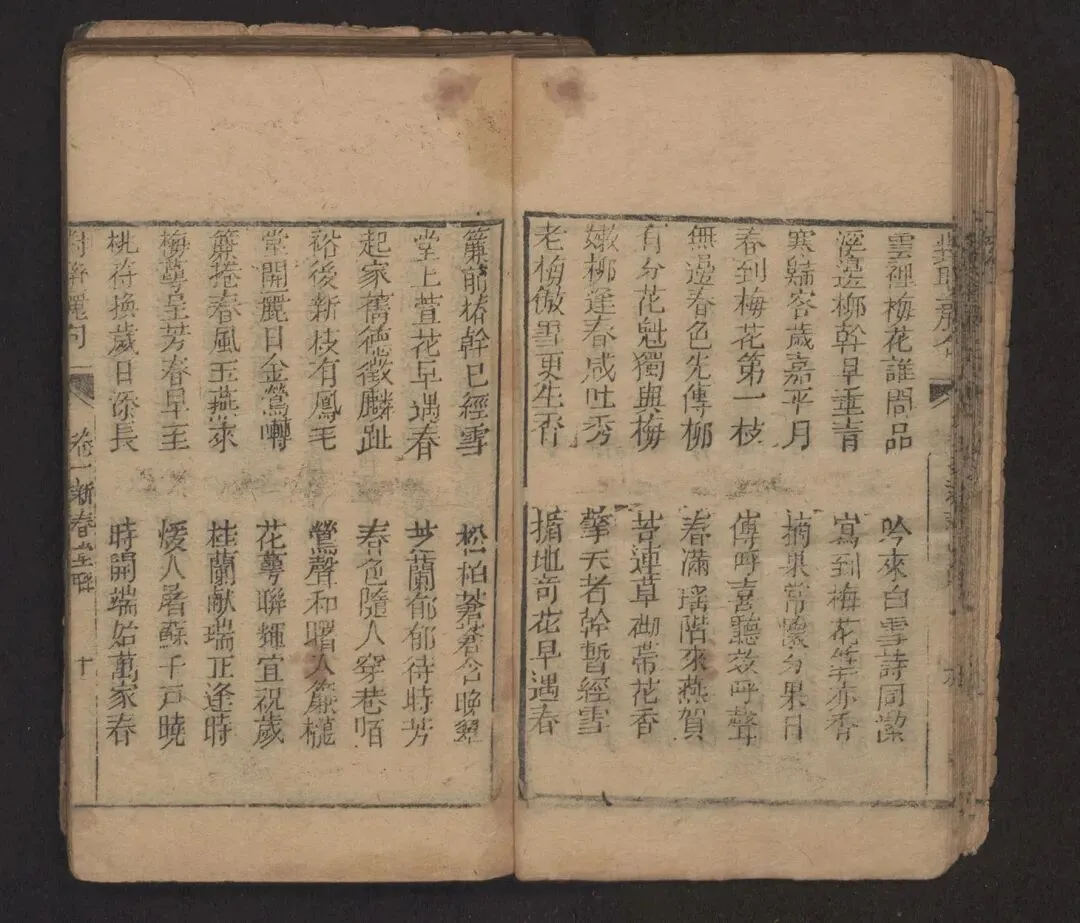 雲裡梅花誰問品
溪邊柳幹早垂青
寒歸客歲嘉平月
春到梅花第一枝
無邊春色先傳柳
有分花魁獨與梅
嫩柳逢春咸吐秀
老梅傲雪更生香
吟來白雪詩同潔
寫到梅花筆亦香
摘果常懷分果日
傳呼喜聽放呼聲
春滿瑤階來燕賀
苔連草砌帶花香
擎天老幹暫經雪
插地奇花早遇春
簾前椿幹已經雪
堂上萱花早遇春
起家舊德徵麟趾
裕後新枝有鳳毛
堂開麗日金鶯囀
簾捲春風玉燕來
梅萼呈芳春早至
桃符換歲日添長
松柏蒼蒼含晚翠
芝蘭郁郁待時芳
春色隨人穿巷陌
鶯聲和曙入簾櫳
花萼聯輝宜祝歲
桂蘭献瑞正逢時
煖人屠蘇千戶曉
時開端始萬家春
卷一新春堂聯 十